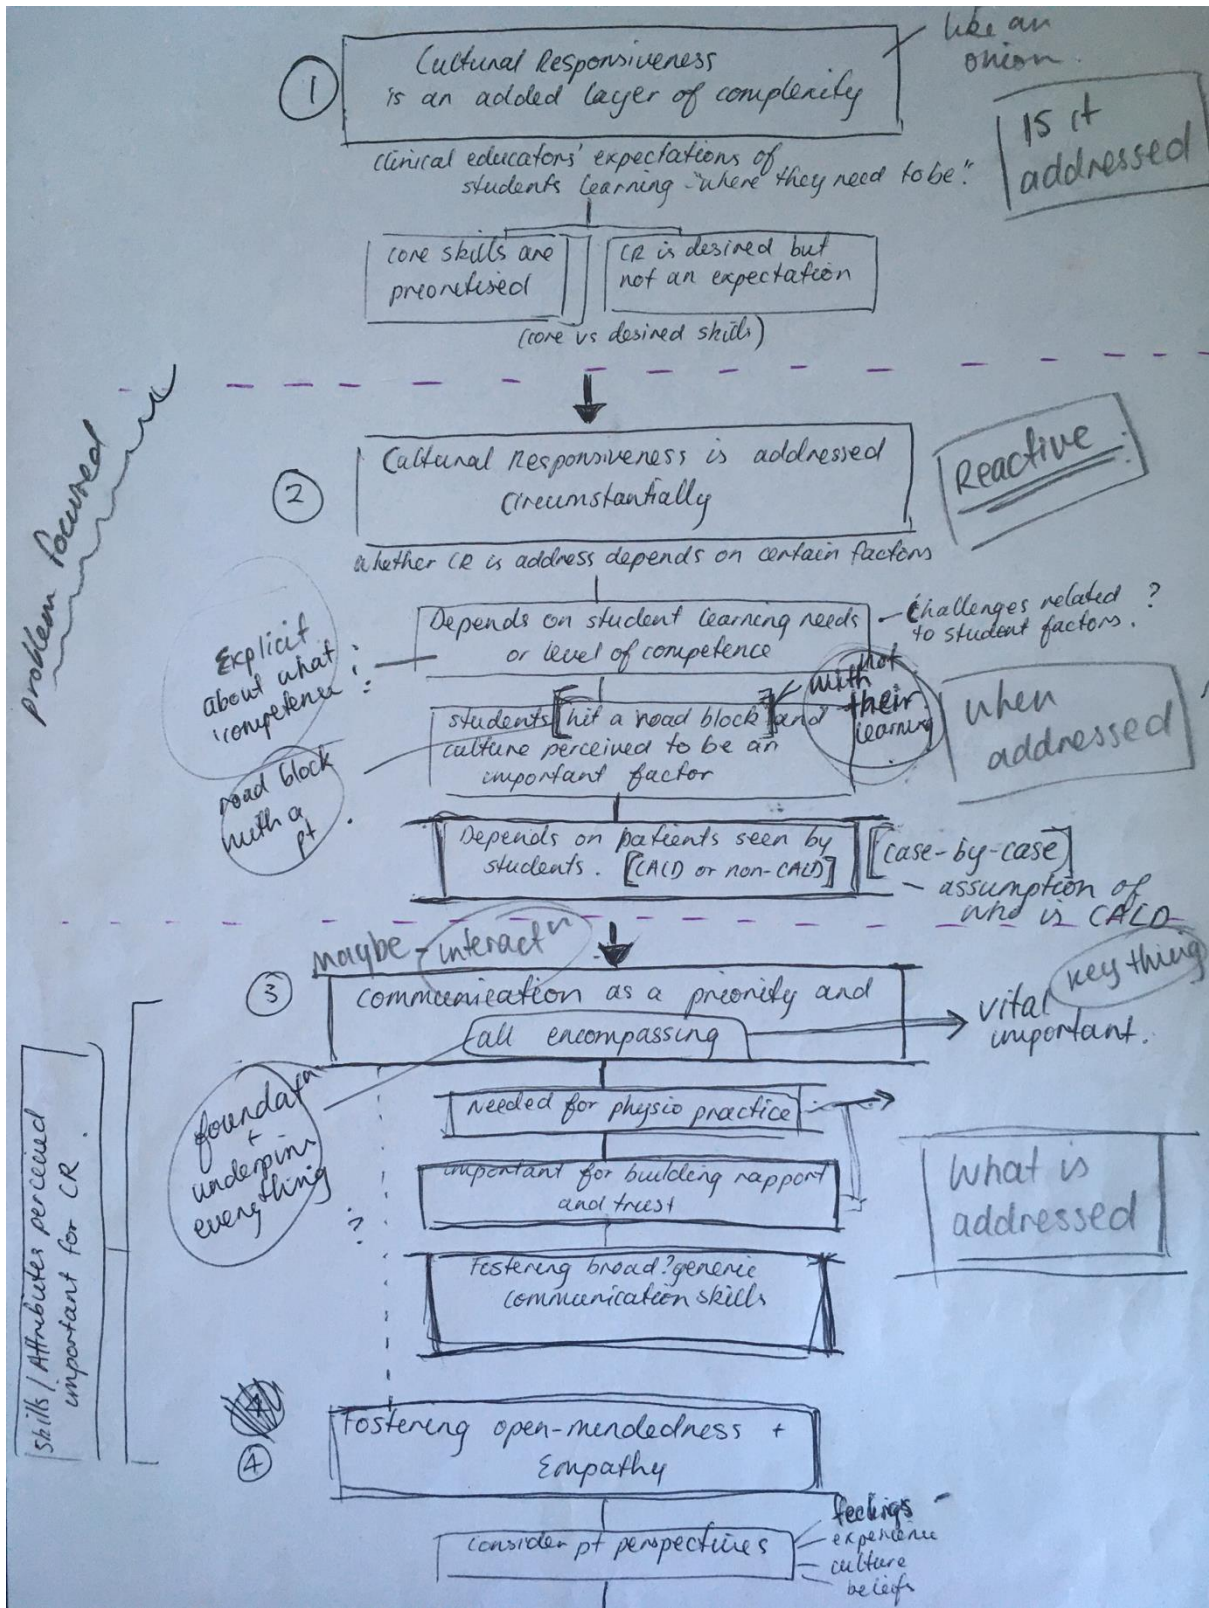 like an
onion.
1
Cultural Responsiveness
is an added layer of complexity
Is it
addressed
clinical educators' expectations of
students learning - "where they need to be."
core skills are
preoretised
CR is desired but
not an expectation
(core vs desired skills)
problem focused
2
Cultural Responsiveness is addressed
circumstantially
Reactive
whether CR is address depends on certain factors
Depends on student learning needs
or level of competence
- Challenges related ?
to student factors.
Explicit
about what
'competence'
students [hit a road block] and
culture perceived to be an
important factor
with not
their
learning
when
addressed
road block
with a
pt.
Depends on patients seen by
students. [CALD or non-CALD]
[case-by-case]
- assumption of
who is CALD
maybe - interactn
3
communication as a priority and
all encompassing
key thing
vital
important.
foundatn
+
underpins
everything
?
needed for physio practice
important for building rapport
and trust
What is
addressed
Fostering broad?generic
communication skills
Skills / Attributes perceived
important for CR.
4
Fostering open-mindedness +
Empathy
consider pt perspectives
feelings
- experience
- culture
beliefs